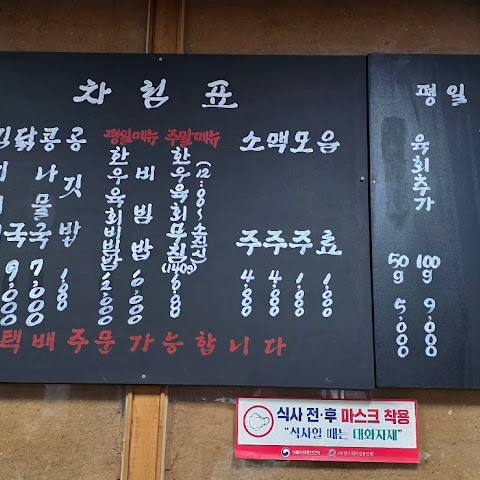 차림표
콩나물국 7,000
공깃밥 1,000
평일메뉴
한우육회비빔밥
비빔밥
주말메뉴
한우육회무침(140g)
(12:00~소진시)
소주 4,000
맥주 4,000
모주 1,000
음료 1,000
택배주문가능합니다
평일
육회추가
50g 5,000
100g 9,000
식사 전·후 마스크 착용
"식사할 때는 대화자제"